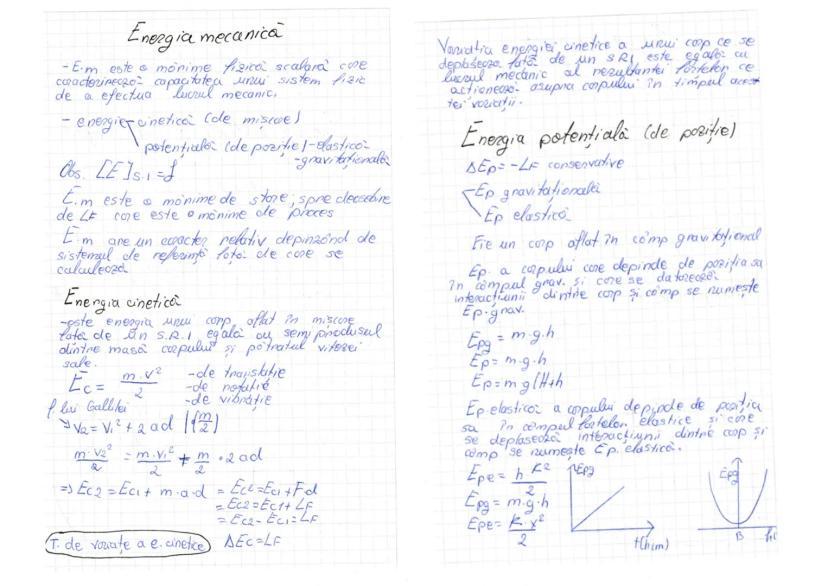 Energia mecanică
- E.m este o mărime fizică scalară care
caracterizează capacitatea unui sistem fizic
de a efectua lucrul mecanic.
- energie cinetică (de mișcare)
potențială (de poziție) - elastică
- gravitațională
Obs. [E]S.I = J
E.m este o mărime de stare, spre deosebire
de LF care este o mărime de proces
E.m are un caracter relativ depinzând de
sistemul de referință față de care se
calculează
Energia cinetică
- este energia unui corp aflat în mișcare
față de un S.R.I egală cu semiprodusul
dintre masa corpului și pătratul vitezei
sale.
Ec = m·v²/2 - de translație
- de rotație
- de vibrație
f lui Galilei
=> v2² = v1² + 2ad |(m/2)
m·v2²/2 = m·v1²/2 + m/2 · 2ad
=> Ec2 = Ec1 + m·a·d = Ec2 = Ec1 + Fd
= Ec2 = Ec1 + LF
= Ec2 - Ec1 = LF
T. de variație a e. cinetice ΔEc = LF
Variația energiei cinetice a unui corp ce se
deplasează față de un S.R.I este egală cu
lucrul mecanic al rezultantei forțelor ce
acționează asupra corpului în timpul aces-
tei variații.
Energia potențială (de poziție)
ΔEp = -LF conservative
Ep gravitațională
Ep elastică
Fie un corp aflat în câmp gravitațional
Ep. a corpului care depinde de poziția sa
în câmpul grav. și care se datorează
interacțiunii dintre corp și câmp se numește
Ep. grav.
Epg = m·g·h
Ep = m·g·h
Ep = m·g(H+h
Ep elastică a corpului depinde de poziția
sa în câmpul forțelor elastice și care
se deplasează interacțiunii dintre corp și
câmp se numește Ep. elastică.
Epe = k x²/2
Epg = m·g·h
Epe = k·x²/2
Epg
t(h(m)
Epg
B